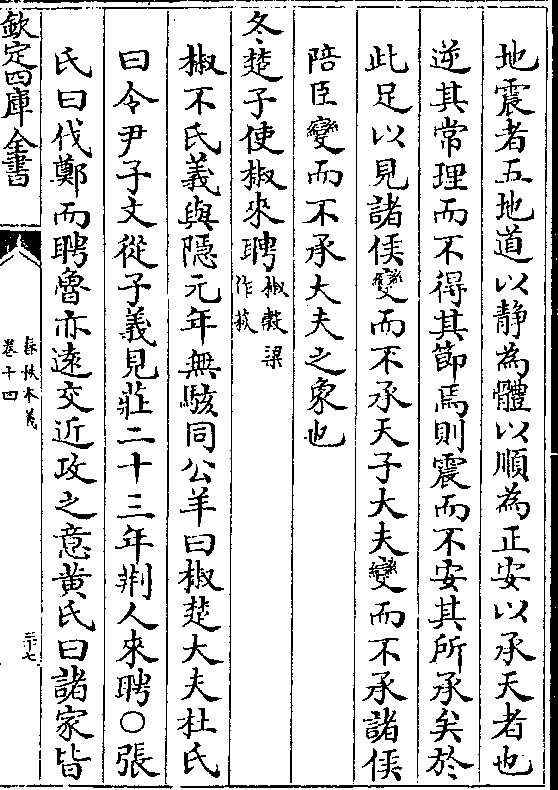 地震者五地道以静為體以順為正安以承天者也
逆其常理而不得其節焉則震而不安其所承矣於
此足以見諸侯變而不承天子大夫變而不承諸侯
陪臣變而不承大夫之象也
冬楚子使椒來聘椒穀梁作萩
椒不氏義與隠元年無駭同公羊曰椒楚大夫杜氏
曰令尹子文從子義見莊二十三年荆人來聘○張
氏曰伐鄭而聘魯亦遠交近攻之意黄氏曰諸家皆
欽定四庫全書
春秋本義
卷十四
三十七